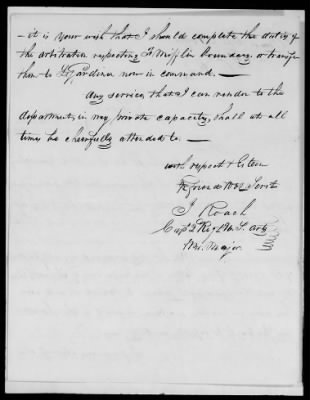 - it is your wish that I should complete the duty of
the arbitration respecting Ft Mifflin Boundary, or transfer
them to Lt Gardiner now in command. —
Any services that I can render to the
department, in my private capacity, shall at all
times be cheerfully attended to. —
with respect & Esteem
Yr friend & Obt Servt
I Roach
Capt 2 Regt U. S. Arty
Bt. Major